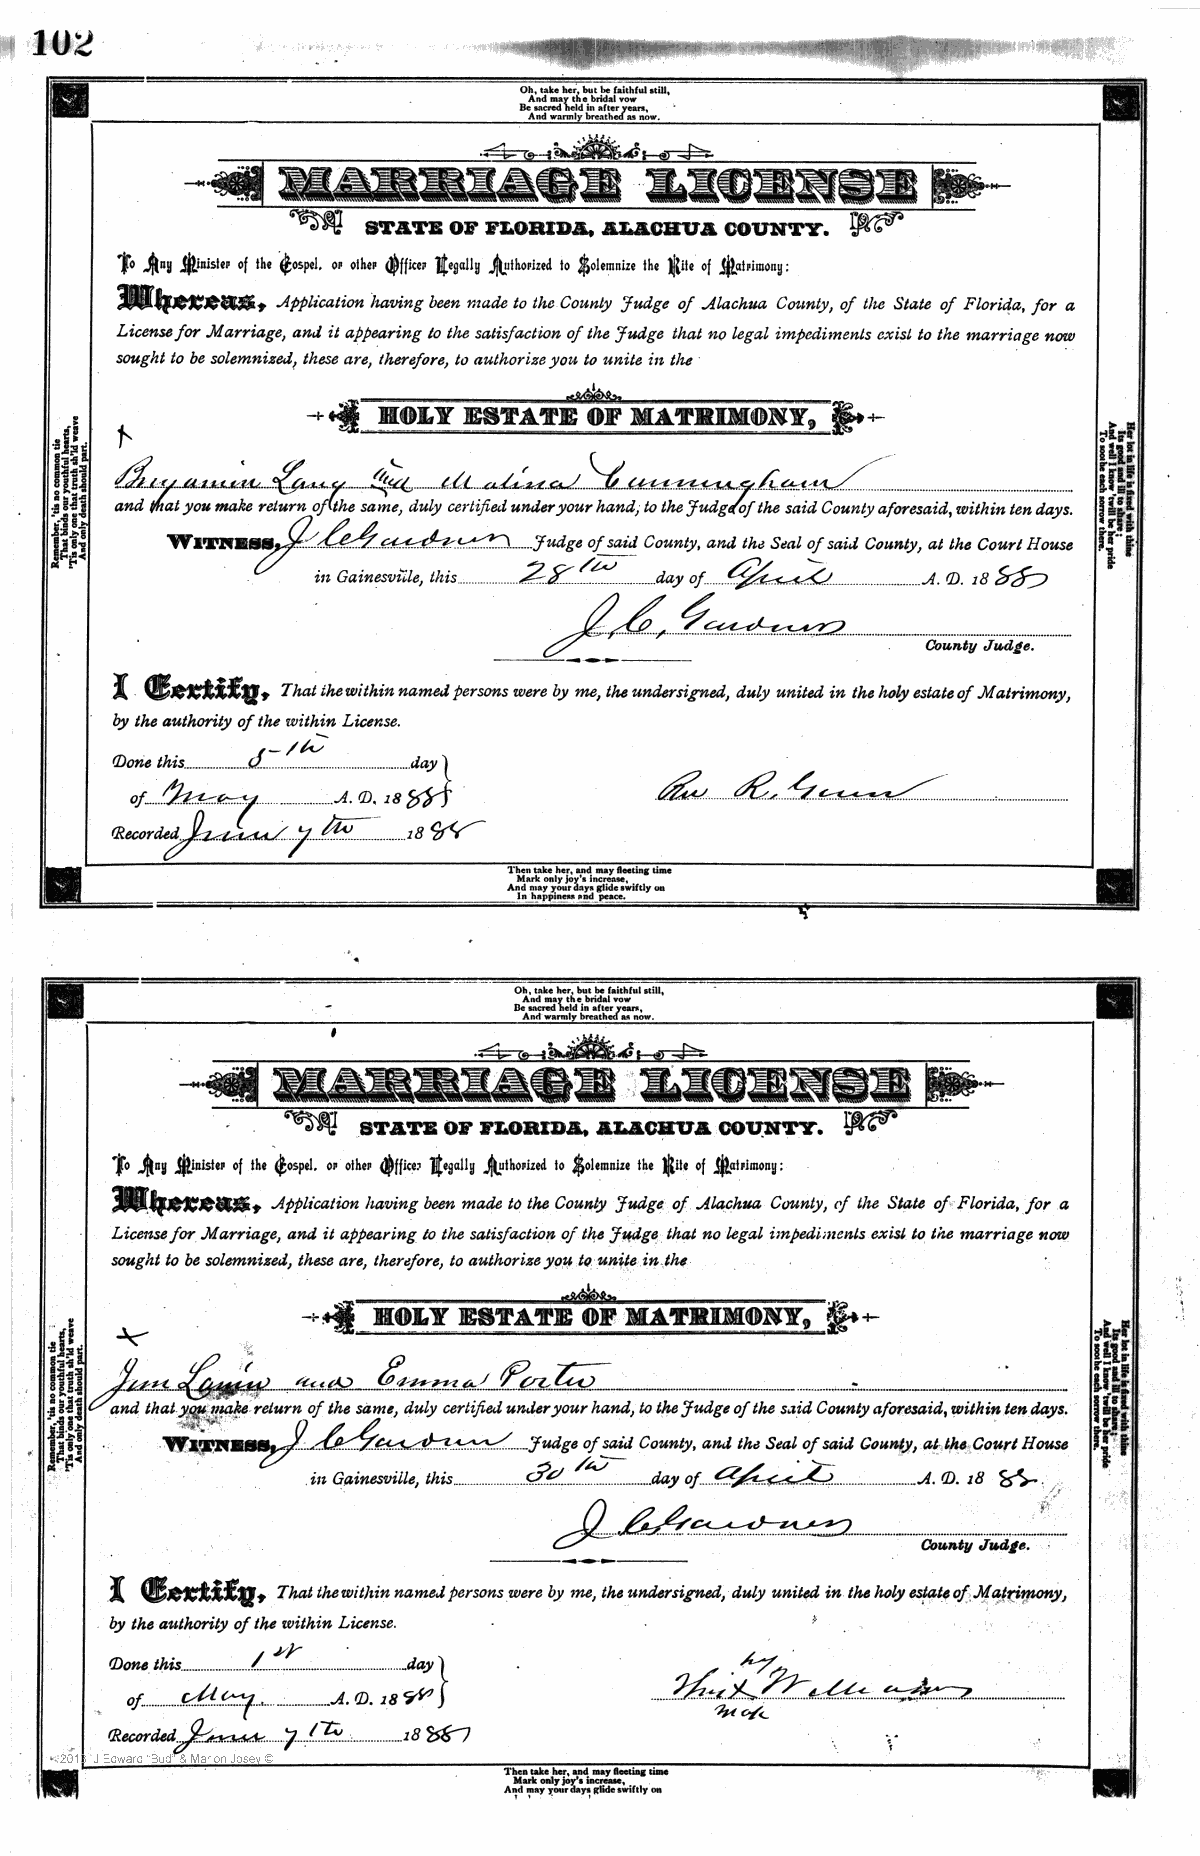 102
Oh, take her, but be faithful still,
And may the bridal vow
Be sacred held in after years,
And warmly breathed as now.
MARRIAGE LICENSE
STATE OF FLORIDA, ALACHUA COUNTY.
To Any Minister of the Gospel, or other Officer Legally Authorized to Solemnize the Rite of Matrimony:
Whereas, Application having been made to the County Judge of Alachua County, of the State of Florida, for a
License for Marriage, and it appearing to the satisfaction of the Judge that no legal impediments exist to the marriage now
sought to be solemnized, these are, therefore, to authorize you to unite in the
HOLY ESTATE OF MATRIMONY,
x
Benjamin Lang and Malina Cunningham
and that you make return of the same, duly certified under your hand, to the Judge of the said County aforesaid, within ten days.
WITNESS, J C Gardner Judge of said County, and the Seal of said County, at the Court House
in Gainesville, this 28th day of April A. D. 1888
J. C. Gardner
County Judge.
I Certify, That the within named persons were by me, the undersigned, duly united in the holy estate of Matrimony,
by the authority of the within License.
Done this 5th day
of May A. D. 1888
Rev R.
Recorded June 7th 1888
Remember, 'tis no common tie
That binds our youthful hearts,
'Tis only one that truth sh'ld weave
And only death should part.
Her lot in life is fixed with thine
Its good and ill to share;
And well I know 'twill be her pride
To soothe each sorrow there.
Then take her, and may fleeting time
Mark only joy's increase,
And may your days glide swiftly on
In happiness and peace.
Oh, take her, but be faithful still,
And may the bridal vow
Be sacred held in after years,
And warmly breathed as now.
MARRIAGE LICENSE
STATE OF FLORIDA, ALACHUA COUNTY.
To Any Minister of the Gospel, or other Officer Legally Authorized to Solemnize the Rite of Matrimony:
Whereas, Application having been made to the County Judge of Alachua County, of the State of Florida, for a
License for Marriage, and it appearing to the satisfaction of the Judge that no legal impediments exist to the marriage now
sought to be solemnized, these are, therefore, to authorize you to unite in the
HOLY ESTATE OF MATRIMONY,
x
Jim and Emma Porter
and that you make return of the same, duly certified under your hand, to the Judge of the said County aforesaid, within ten days.
WITNESS, J C Gardner Judge of said County, and the Seal of said County, at the Court House
in Gainesville, this 30th day of April A. D. 1888
J C Gardner
County Judge.
I Certify, That the within named persons were by me, the undersigned, duly united in the holy estate of Matrimony,
by the authority of the within License.
Done this 1st day
of May. A. D. 1888
x
Recorded June 7th 1888
Remember, 'tis no common tie
That binds our youthful hearts,
'Tis only one that truth sh'ld weave
And only death should part.
Her lot in life is fixed with thine
Its good and ill to share;
And well I know 'twill be her pride
To soothe each sorrow there.
J Edward "Bud" & Marion Josey ©
Then take her, and may fleeting time
Mark only joy's increase,
And may your days glide swiftly on